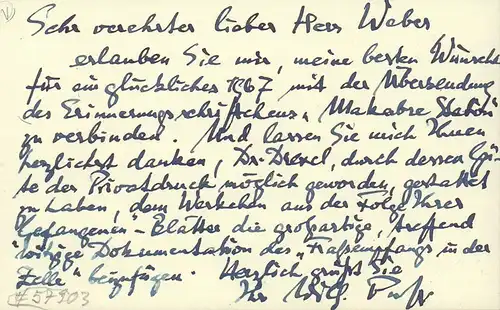 Sehr verehrter lieber Herr Weber
erlauben Sie mir, meine besten Wünsche
für ein glückliches 1967 mit der Übersendung
des Erinnerungsschriftchens „Makabre Station"
zu verbinden. Und lassen Sie mich Ihnen
herzlichst danken, Dr. Drexel, durch dessen Gü-
te der Privatdruck möglich geworden, gestattet
zu haben, dem Werkchen aus der Folge Ihrer
„Gefangenen"-Blätter die großartige, treffend
witzige Dokumentation des „Fraßempfangs in der
Zelle" beizufügen. Herzlich grüßt Sie
Ihr
# 57903